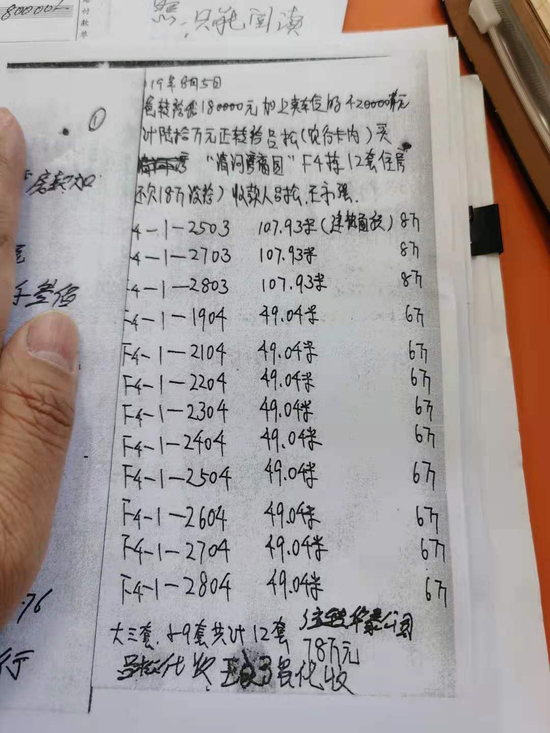 80000
只能阅读
①
19年8月5日
180000元加上卖车位的420000元
计陆拾万元正转给吕松(农行卡内)买
F4栋12套住房
还欠18万没给)收款人吕松.王永强.
4-1-2503 107.93米(建筑面积) 8万
4-1-2703 107.93米 8万
4-1-2803 107.93米 8万
F4-1-1904 49.04米 6万
F4-1-2104 49.04米 6万
F4-1-2204 49.04米 6万
F4-1-2304 49.04米 6万
F4-1-2404 49.04米 6万
F4-1-2504 49.04米 6万
F4-1-2604 49.04米 6万
F4-1-2704 49.04米 6万
F4-1-2804 49.04米 6万
大三套.小9套共计12套
78万元
吕松代收
代收
76
行